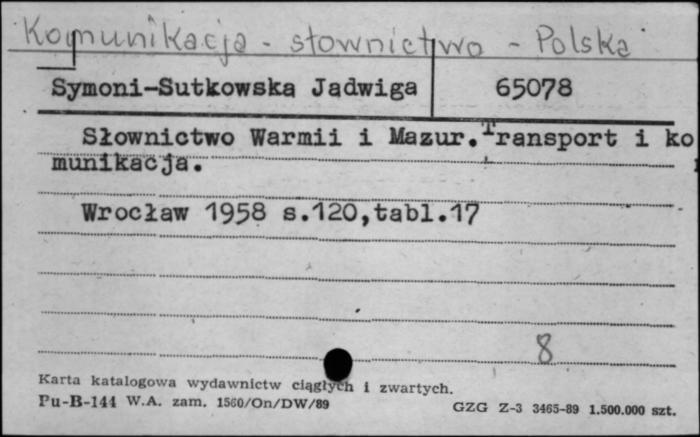 Komunikacja - słownictwo - Polska
Symoni-Sutkowska Jadwiga 65078
Słownictwo Warmii i Mazur.Transport i ko
munikacja.
Wrocław 1958 s.120,tabl.17
8
Karta katalogowa wydawnictw ciągłych i zwartych.
Pu-B-144 W.A. zam. 1560/On/DW/89 GZG Z-3 3465-89 1.500.000 szt.